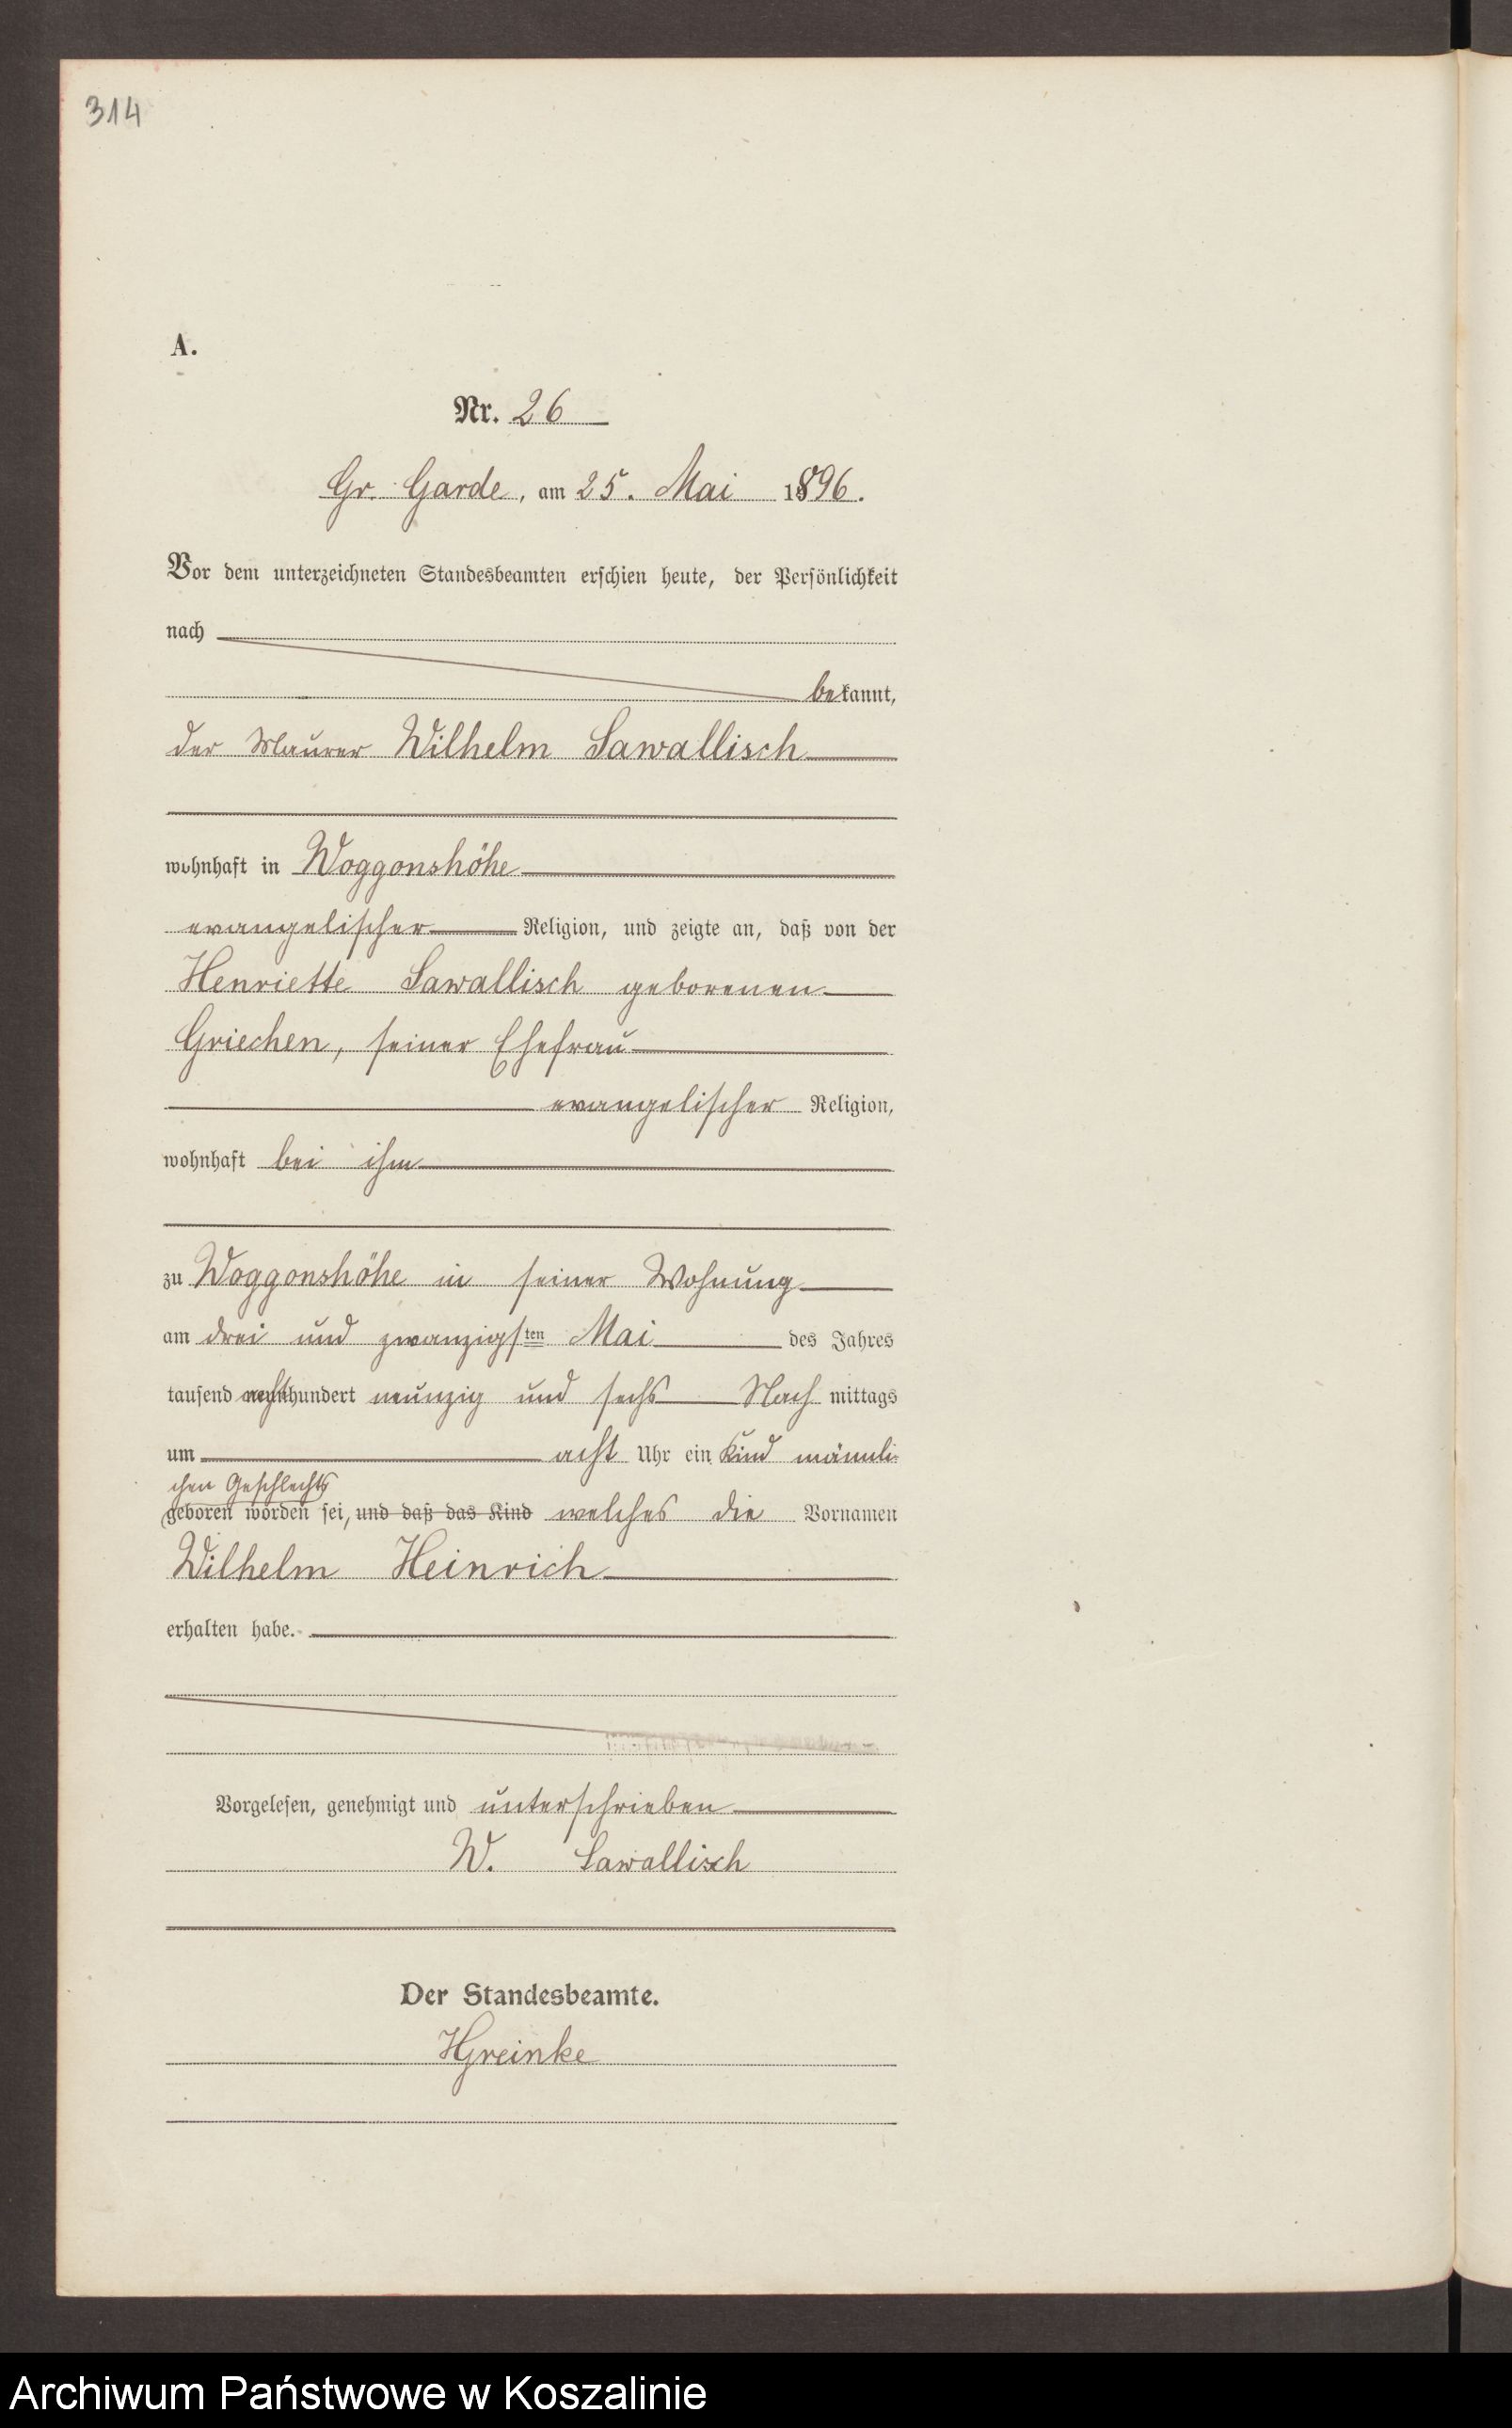 314
A.
Nr. 26
Gr. Garde, am 25. Mai 1896.
Vor dem unterzeichneten Standesbeamten erschien heute, der Persönlichkeit
nach
bekannt,
der Maurer Wilhelm Sawallisch
wohnhaft in Woggonshöhe
evangelischer Religion, und zeigte an, daß von der
Henriette Sawallisch geborenen
Griechen, seiner Ehefrau
evangelischer Religion,
wohnhaft bei ihm
zu Woggonshöhe in seiner Wohnung
am drei und zwanzigsten Mai des Jahres
tausend achthundert neunzig und sechs Nach mittags
um acht Uhr ein Kind männli-
chen Geschlechts
geboren worden sei, und daß das Kind welches die Vornamen
Wilhelm Heinrich
erhalten habe.
Vorgelesen, genehmigt und unterschrieben
W. Sawallisch
Der Standesbeamte.
HGreinke
Archiwum Państwowe w Koszalinie